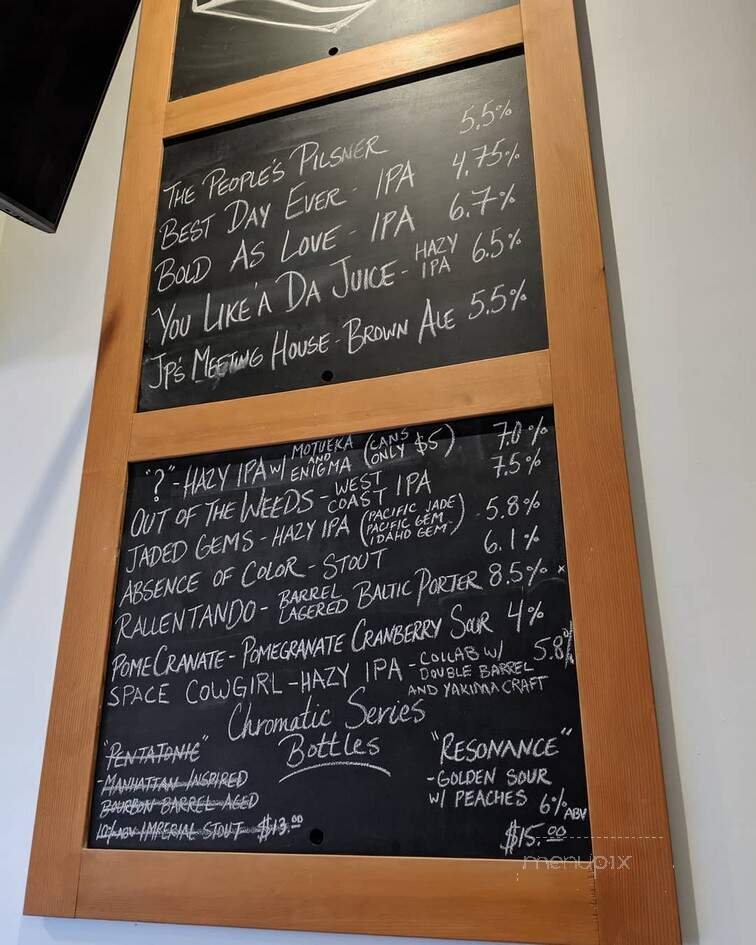 THE PEOPLE'S PILSNER 5.5%
BEST DAY EVER - IPA 4.75%
BOLD AS LOVE - IPA 6.7%
YOU LIKE'A DA JUICE - HAZY IPA 6.5%
JP'S MEETING HOUSE - BROWN ALE 5.5%
"?" - HAZY IPA W/ MOTUEKA AND ENIGMA (CANS ONLY $5) 7.0%
OUT OF THE WEEDS - WEST COAST IPA 7.5%
JADED GEMS - HAZY IPA (PACIFIC JADE PACIFIC GEM IDAHO GEM) 5.8%
ABSENCE OF COLOR - STOUT 6.1%
RALLENTANDO - BARREL LAGERED BALTIC PORTER 8.5% *
POMECRANATE - POMEGRANATE CRANBERRY SOUR 4%
SPACE COWGIRL - HAZY IPA - COLLAB W/ DOUBLE BARREL AND YAKIMA CRAFT 5.8%
Chromatic Series
Bottles
"PENTATONIC"
- MANHATTAN INSPIRED
BOURBON BARREL AGED
10% ABV IMPERIAL STOUT $13.00
"RESONANCE"
- GOLDEN SOUR
W/ PEACHES 6% ABV
$15.00
menupix